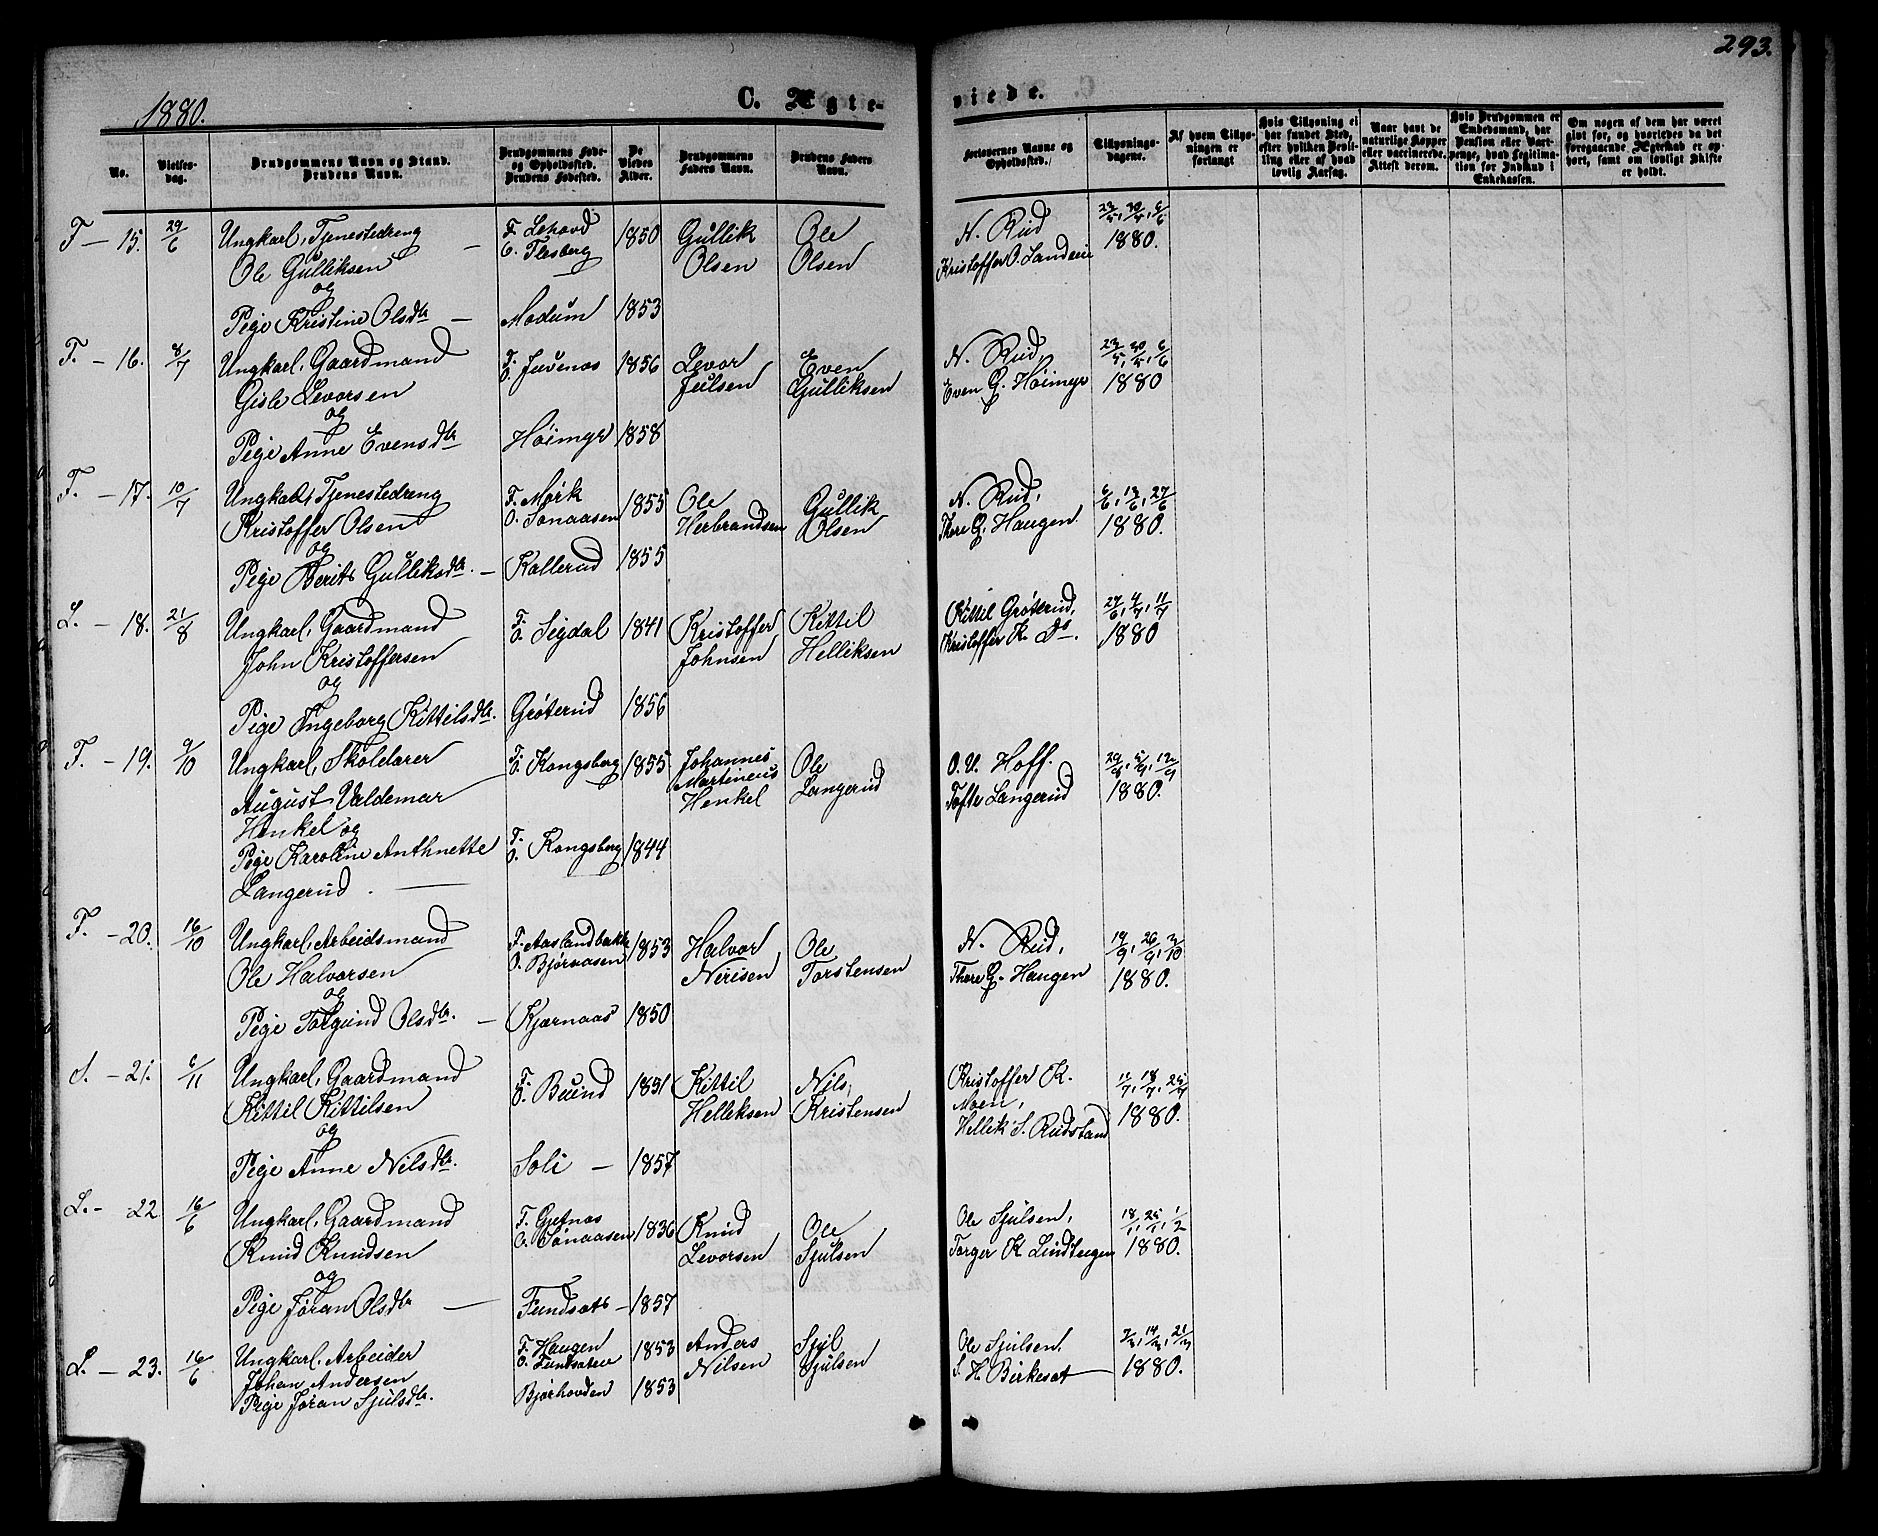 293.
1880.
C. Ægte-
viede.
No.
Vielses-dag.
Brudgommens Navn og Stand. Brudens Navn.
Brudgommens Føde- og Opholdssted. Brudens Fødested.
De Viedes Alder.
Brudgommens Faders Navn.
Brudens Faders Navn.
Forlovernes Navne og Opholdssted.
Tillysnings-dagene.
Af hvem Tillysningen er forlangt
Hvis Tillysning ei har fundet Sted, efter hvilken Bevilling eller af hvad lovlig Aarsag.
Naar havt de naturlige Kopper eller vaccinerede. Attest derom.
Hvis Brudgommen er Embedsmand, har Pension eller Vartpenge, hvad Legitimation for Indskud i Enkekassen.
Om nogen af dem har været gift før, og hvorledes da det foregaaende Ægteskab er ophørt, samt om lovligt Skifte er holdt.
F — 15. 29/6 Ungkarl, Tjenestedreng — F. Lehovd 1850 Gullik Ole N. Rud 23/5, 30/5, 6/6
Ole Gulliksen O. Flesberg Olsen Olsen Kristoffer O. Landeie 1880.
og
Pige Kristine Olsdtr — Modum 1853
F. — 16. 8/7 Ungkarl, Gaardmand F. O. Juvenas 1856 Levor Even N. Rud, 23/5, 30/5, 6/6
Gisle Levorsen Juulsen Gulliksen Even G. Høimyr 1880
og
Pige Anne Evensdtr Høimyr 1858
F. — 17. 10/7 Ungkarl, Tjenestedreng F. Mørk 1855 Ole Gullik N. Rud, 6/6, 13/6, 27/6
Kristoffer Olsen O. Tonaasen Herbrandsen Olsen Thore G. Haugen 1880.
og
Pige Berit Gulliksdtr. — Kallerud 1855
L. — 18. 21/8 Ungkarl, Gaardmand F. O. Sigdal 1841 Kristoffer Kittil Kittil Grøterud, 27/6, 4/7, 11/7
John Kristoffersen Johnsen Helliksen Kristoffer K. Do. 1880
og
Pige Ingeborg Kittilsdtr. Grøterud 1856
F. — 19. 9/10 Ungkarl, Skolelærer F. O. Kongsberg 1855 Johannes Ole O. V. Hoff. 29/8, 5/9, 12/9
August Valdemar Martineus Langerud Tofte Langerud 1880.
Henkel og Henkel
Pige Karoline Anthnette F. O. Kongsberg 1844
Langerud. —
F. — 20. 16/10 Ungkarl, Arbeidsmand F. Aaslandbakke 1853 Halvor Ole N. Rud, 19/9, 26/9, 3/10
Ole Halvorsen O. Bjørnaasen Nerisen Torstensen Thore G. Haugen 1880.
og
Pige Torgund Olsdtr. — Kjærnaas 1850
S. — 21. 6/11 Ungkarl, Gaardmand F. O. Buind 1851 Kittil Nils Kristoffer K. 11/7, 18/7, 25/7
Kittil Kittilsen Helliksen Kristensen Moen, 1880.
og Hellik S. Rudsland
Pige Anne Nilsdtr. Soli — 1857
L. — 22 16/6 Ungkarl, Gaardmand F. Gjetnas 1836 Knud Ole Ole Sjulsen, 18/1, 25/1, 1/2
Knud Knudsen O. Tonaasen Levorsen Sjulsen Torger K Lindteigen 1880.
og
Pige Jøran Olsdtr — Fundsat — 1857
L. — 23. 16/6 Ungkarl, Arbeider F. Haugen 1853 Anders Sjul Ole Sjulsen, 7/3, 14/3, 21/3
Johan Andersen Nilsen Sjulsen S. H. Birkesat — 1880.
Pige Jøran Sjulsdtr. Bjørhovden 1853